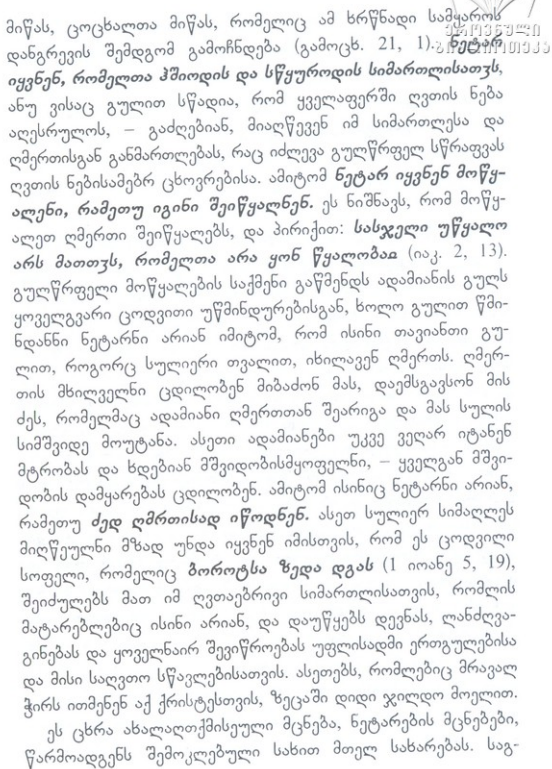 მიწას, ცოცხალთა მიწას, რომელიც ამ ხრწნადი სამყაროს
დანგრევის შემდგომ გამოჩნდება (გამოცხ. 21, 1). ნეტარ
იყვნენ, რომელთა ჰშიოდის და სწყუროდის სიმართლისათჳს,
ანუ ვისაც გულით სწადია, რომ ყველაფერში ღვთის ნება
აღესრულოს, – გაძღებიან, მიაღწევენ იმ სიმართლესა და
ღმერთისგან განმართლებას, რაც იძლევა გულწრფელ სწრაფვას
ღვთის ნებისამებრ ცხოვრებისა. ამიტომ ნეტარ იყვნენ მოწყ-
ალენი, რამეთუ იგინი შეიწყალნენ. ეს ნიშნავს, რომ მოწყ-
ალეთ ღმერთი შეიწყალებს, და პირიქით: სასჯელი უწყალო
არს მათთჳს, რომელთა არა ყონ წყალობაჲ (იაკ. 2, 13).
გულწრფელი მოწყალების საქმენი გაწმენდს ადამიანის გულს
ყოველგვარი ცოდვითი უწმინდურებისგან, ხოლო გულით წმი-
ნდანნი ნეტარნი არიან იმიტომ, რომ ისინი თავიანთი გუ-
ლით, როგორც სულიერი თვალით, იხილავენ ღმერთს. ღმერ-
თის მხილველნი ცდილობენ მიბაძონ მას, დაემსგავსონ მის
ძეს, რომელმაც ადამიანი ღმერთთან შეარიგა და მას სულის
სიმშვიდე მოუტანა. ასეთი ადამიანები უკვე ვეღარ იტანენ
მტრობას და ხდებიან მშვიდობისმყოფელნი, – ყველგან მშვი-
დობის დამყარებას ცდილობენ. ამიტომ ისინიც ნეტარნი არიან,
რამეთუ ძედ ღმრთისად იწოდნენ. ასეთ სულიერ სიმაღლეს
მიღწეულნი მზად უნდა იყვნენ იმისთვის, რომ ეს ცოდვილი
სოფელი, რომელიც ბოროტსა ზედა დგას (1 იოანე 5, 19),
შეიძულებს მათ იმ ღვთაებრივი სიმართლისათვის, რომლის
მატარებლებიც ისინი არიან, და დაუწყებს დევნას, ლანძღვა-
გინებას და ყოველნაირ შევიწროებას უფლისადმი ერთგულებისა
და მისი საღვთო სწავლებისათვის. ასეთებს, რომლებიც მრავალ
ჭირს ითმენენ აქ ქრისტესთვის, ზეცაში დიდი ჯილდო მოელით.
ეს ცხრა ახალაღთქმისეული მცნება, ნეტარების მცნებები,
წარმოადგენს შემოკლებული სახით მთელ სახარებას. საგ-
ეროვნული
ბიბლიოთეკა